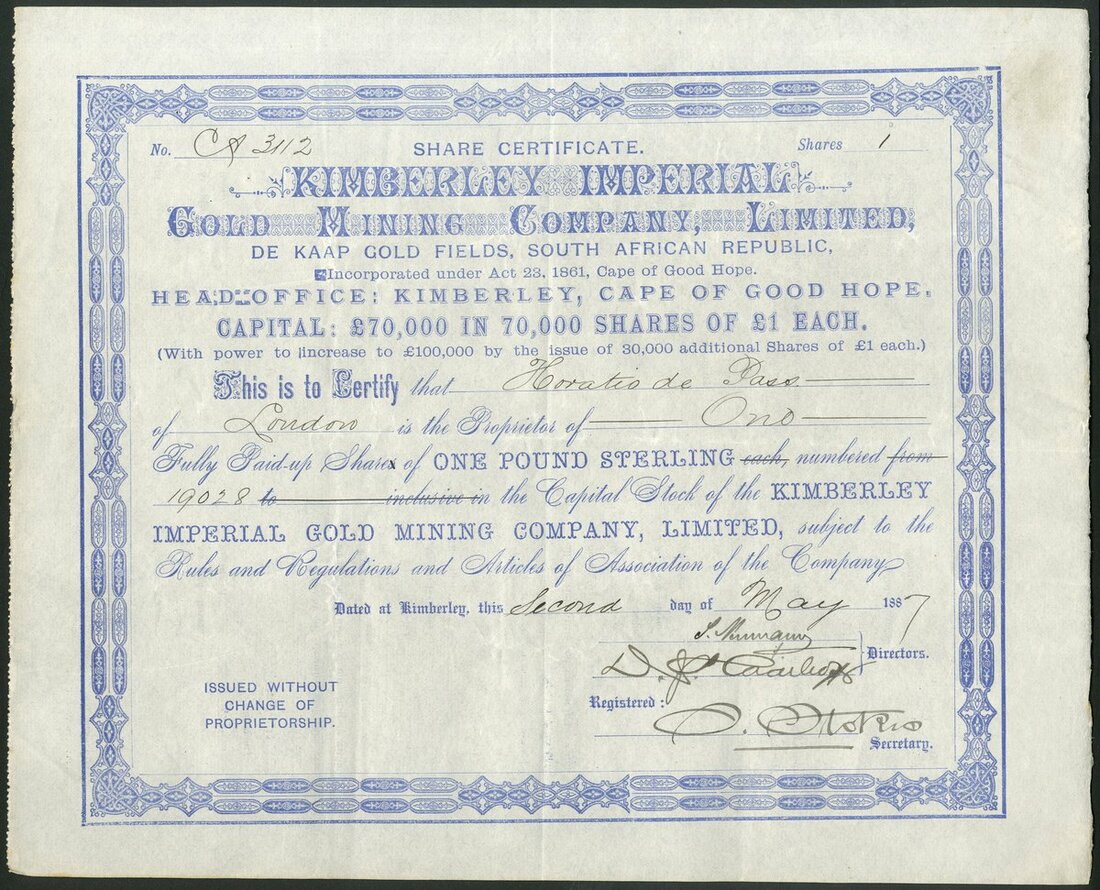 No. CA 3112 SHARE CERTIFICATE. Shares 1
KIMBERLEY IMPERIAL
GOLD MINING COMPANY, LIMITED,
DE KAAP GOLD FIELDS, SOUTH AFRICAN REPUBLIC,
Incorporated under Act 23, 1861, Cape of Good Hope.
HEAD OFFICE: KIMBERLEY, CAPE OF GOOD HOPE.
CAPITAL: £70,000 IN 70,000 SHARES OF £1 EACH.
(With power to increase to £100,000 by the issue of 30,000 additional Shares of £1 each.)
This is to Certify that Horatio de Pass
of London is the Proprietor of One
Fully Paid-up Share of ONE POUND STERLING each, numbered from
19028 to inclusive in the Capital Stock of the KIMBERLEY
IMPERIAL GOLD MINING COMPANY, LIMITED, subject to the
Rules and Regulations and Articles of Association of the Company
Dated at Kimberley, this Second day of May 1887
Directors.
ISSUED WITHOUT
CHANGE OF
PROPRIETORSHIP.
Registered:
Secretary.